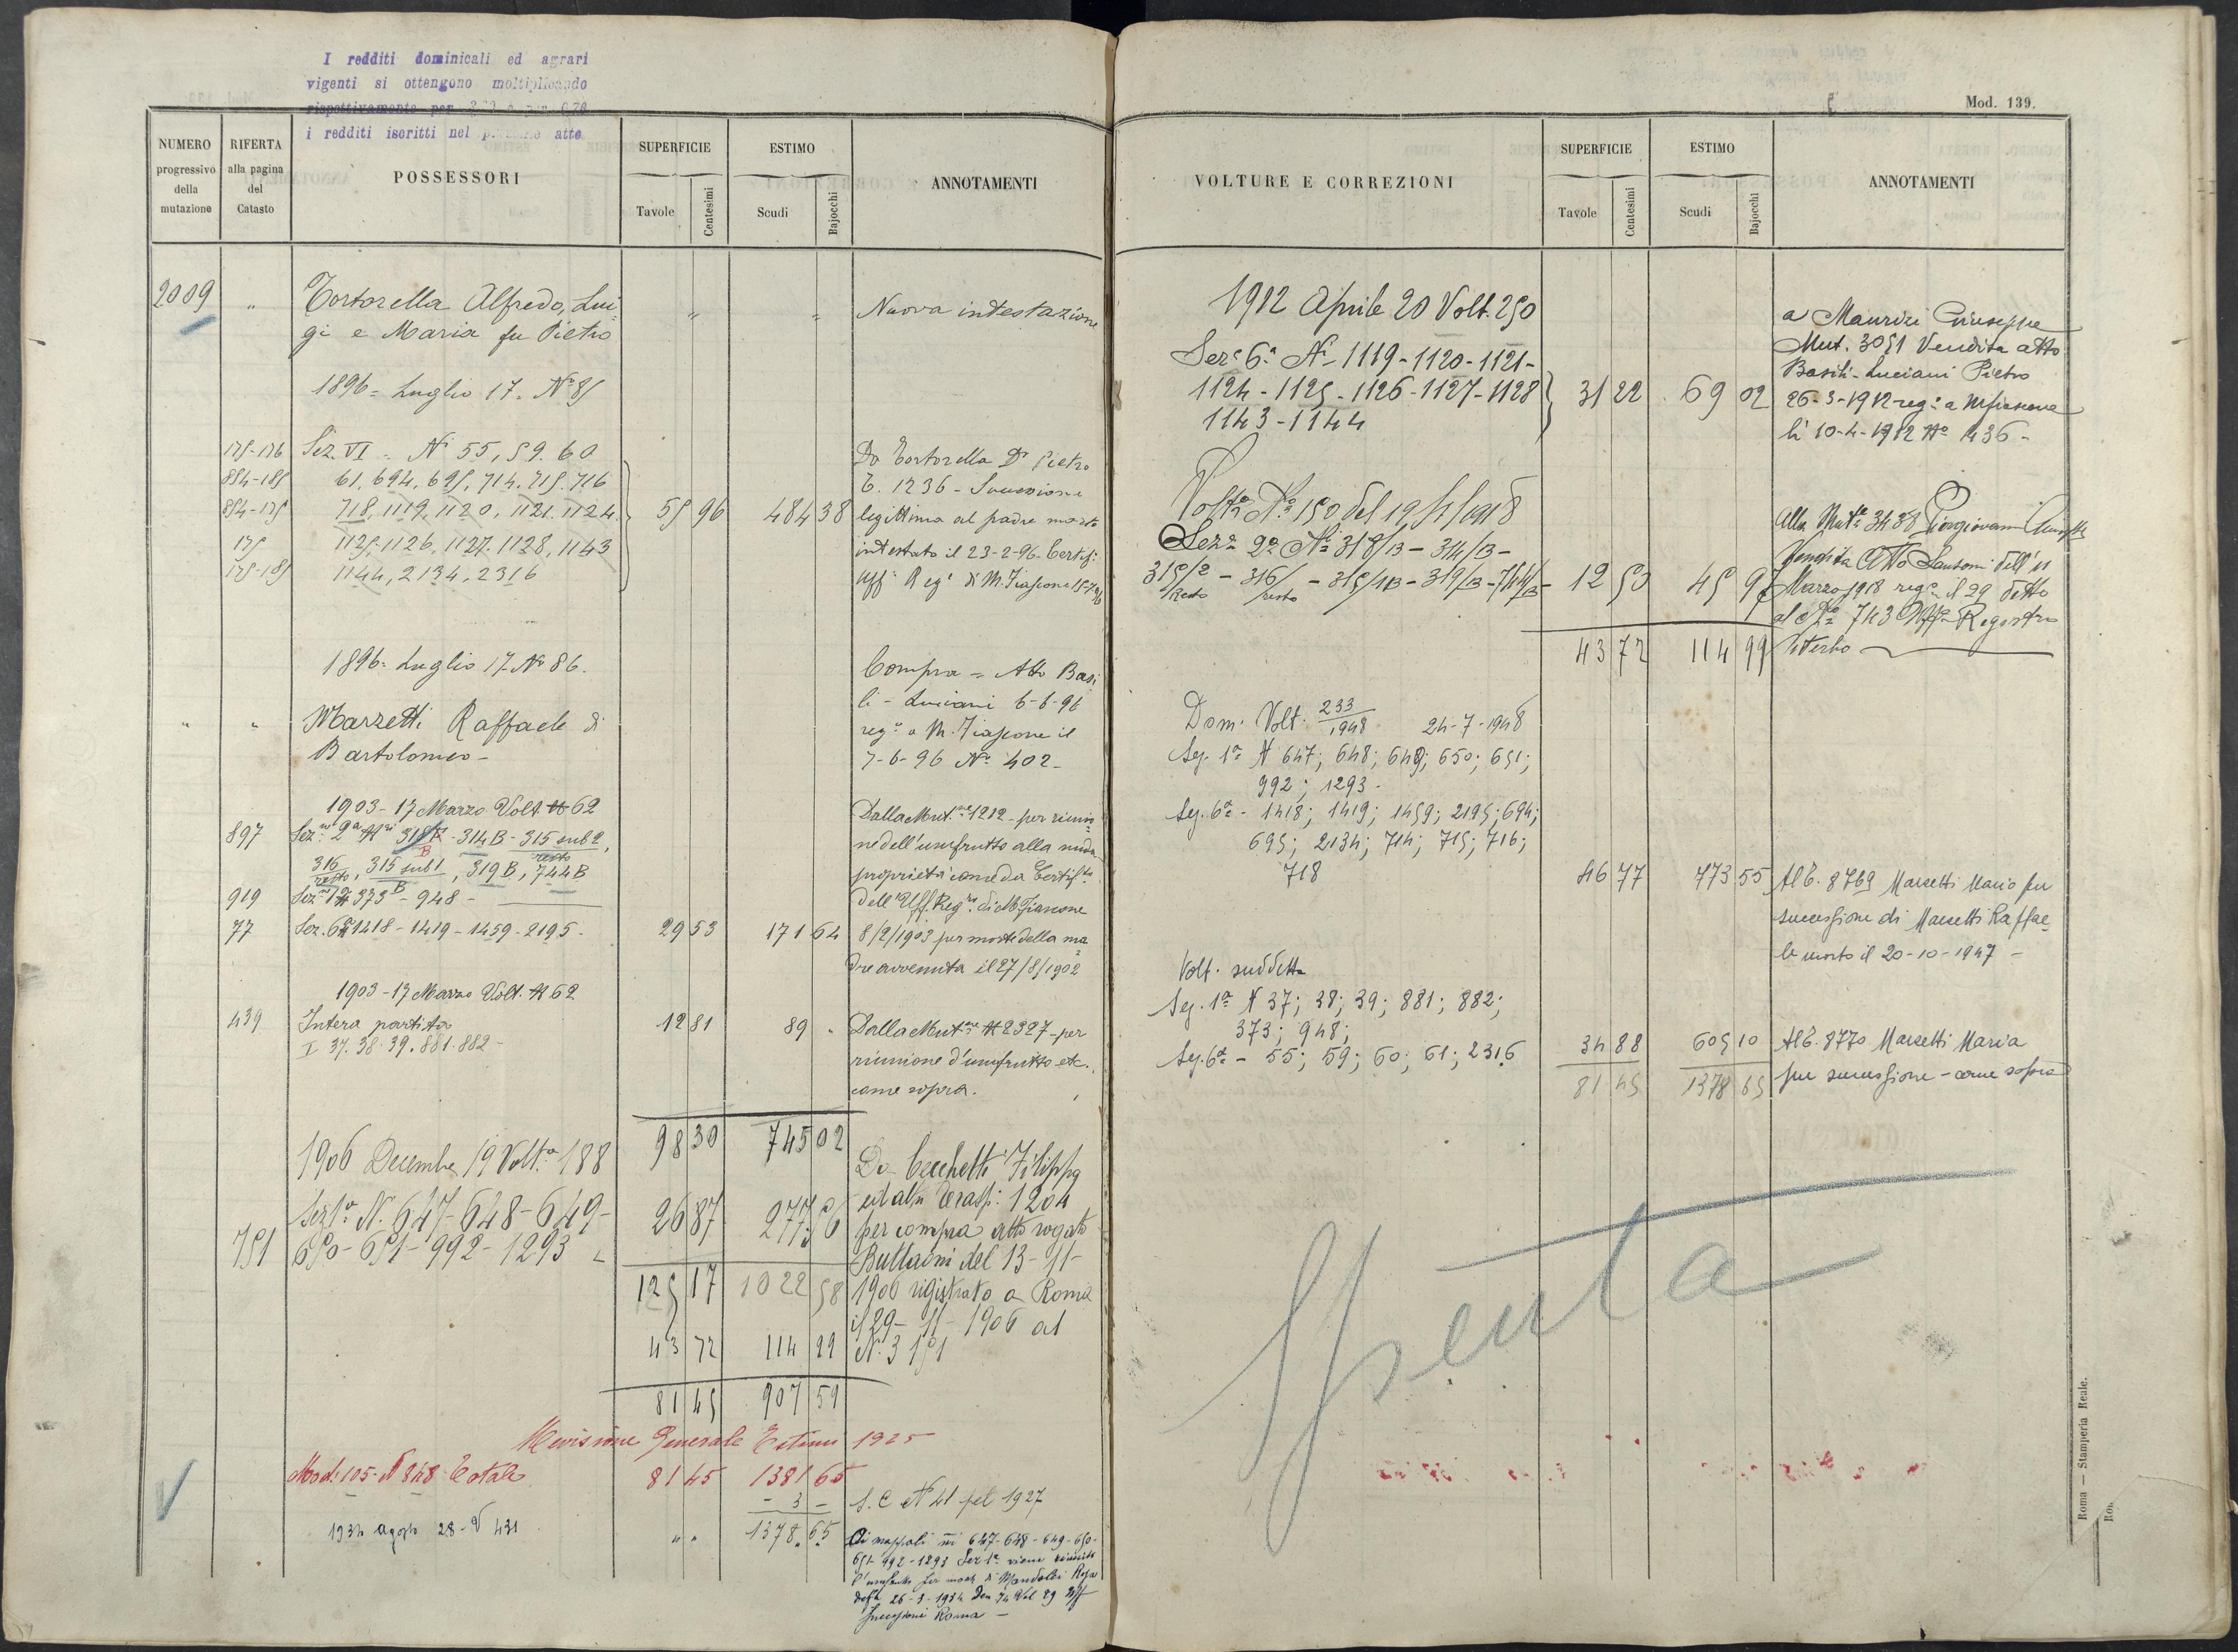 I redditi dominicali ed agrari
vigenti si ottengono moltiplicando
rispettivamente per
i redditi iscritti nel atto
NUMERO progressivo della mutazione
RIFERTA alla pagina del Catasto
POSSESSORI
SUPERFICIE
Tavole
Centesimi
ESTIMO
Scudi
Bajocchi
ANNOTAMENTI
2009 " Tortorella Alfredo, Lui- " " Nuova intestazione
gi e Maria fu Pietro
1896 = Luglio 17. N° 85
175-176 Sez. VI = N 55, 59. 60 Da Tortorella Dr Pietro
884-185 61, 694, 695, 714, 715, 716 T. 1236 - Successione
884-175 718, 1119, 1120, 1121. 1124. 55 96 484 38 legittima al padre morto
175 1125. 1126, 1127. 1128, 1143 intestato il 23-2-96. Certif.
175-185 1144, 2134, 2316 Uff° Reg° di M. Fiascone
1896 = Luglio 17 N° 86. Compra = Atto Basi
li - Luciani 6-6-96
" " Marzetti Raffaele di reg° a M. Fiascone il
Bartolomeo - 7-6-96 N° 402 -
1903 - 17 Marzo Volt. N 62 Dalla Mut.ne 1212 - per riunio
897 Sez.ne 2a Ni 318 B - 314B - 315 sub 2, ne dell'usufrutto alla nuda
resto
316 resto, 315 sub 1 B, 319 B, 744 B proprietà come da Certif.to
919 Sez.ne 1a N 373 - 948 - dell'Uff. Reg.ro di M. Fiascone
77 Sez. 6a N 1418 - 1419 - 1459 - 2195 - 29 53 171 64 8/2/1903 per morte della ma
dre avvenuta il 27/8/1902
1903 - 17 Marzo Volt. N 62
439 Intera partita 12 81 89 " Dalla Mut.ne N 2327 - per
I 37. 38. 39. 881. 882 - riunione d'usufrutto etc.
come sopra.
98 30 745 02
1906 Decembre 19 Volt.a 188 Da Cecchetti Filippo
ed altri Trasp: 1204
Sez 1a N. 647-648-649- 26 87 277 56 per compra atto rogato
751 650-651-992-1293 Buttaoni del 13-11-
125 17 1022 58 1906 registrato a Roma
il 29-11-1906 al
43 72 114 99 N. 3151
81 45 907 59
Revisione Generale Estimi 1925
Mod. 105 - N 848 Totale 81 45 1381 65
- 3 - S. C N 41 pel 1927
1934 agosto 28 - V 431 " " 1378. 65 Ai mappali ni 647-648-649-650-
651-992-1293 Sez 1a viene riunito
l'usufrutto per morte di Mandolei Rosa
26-3-1934 Den 74 Vol 89 Uff
Successioni Roma -
Mod. 139.
VOLTURE E CORREZIONI
SUPERFICIE
Tavole
Centesimi
ESTIMO
Scudi
Bajocchi
ANNOTAMENTI
1912 Aprile 20 Volt. 250 a Maurizi Giuseppe
Sez.e 6.a Ni 1119-1120-1121- Mut. 3051 Vendita atto
1124-1125-1126-1127-1128 31 22 69 02 Basili-Luciani Pietro
1143-1144 26-3-1912 reg.° a Mfiascone
li 10-4-1912 N° 436 -
Volt.a N° 150 del 1918 Alla Mut.e 3488 Piergiovanni
Sez.a 2a Ni 318/B - 314/B - Vendita Atto Sansoni dell'11
315/2 resto - 316/resto - 315/1B - 319/B - 744/B - 12 50 45 97 Marzo 1918 reg.° il 29 detto
al N° 743 Uff° Registro
43 72 114 99 Viterbo
Dom. Volt. 233/1948 24-7-1948
Sez. 1a N 647; 648; 649; 650; 651;
992; 1293 -
Sez. 6a - 1418; 1419; 1459; 2195; 694;
695; 2134; 714; 715; 716;
718 46 77 773 55 Al C. 8769 Marzetti Mario per
successione di Marzetti Raffae-
le morto il 20-10-1947 -
Volt. suddetta
Sez. 1a N 37; 38; 39; 881; 882;
373; 948;
Sez. 6a - 55; 59; 60; 61; 2316 34 88 605 10 Al C. 8770 Marzetti Maria
81 45 1378 65 per successione - come sopra
Spenta
Roma — Stamperia Reale.
Ron